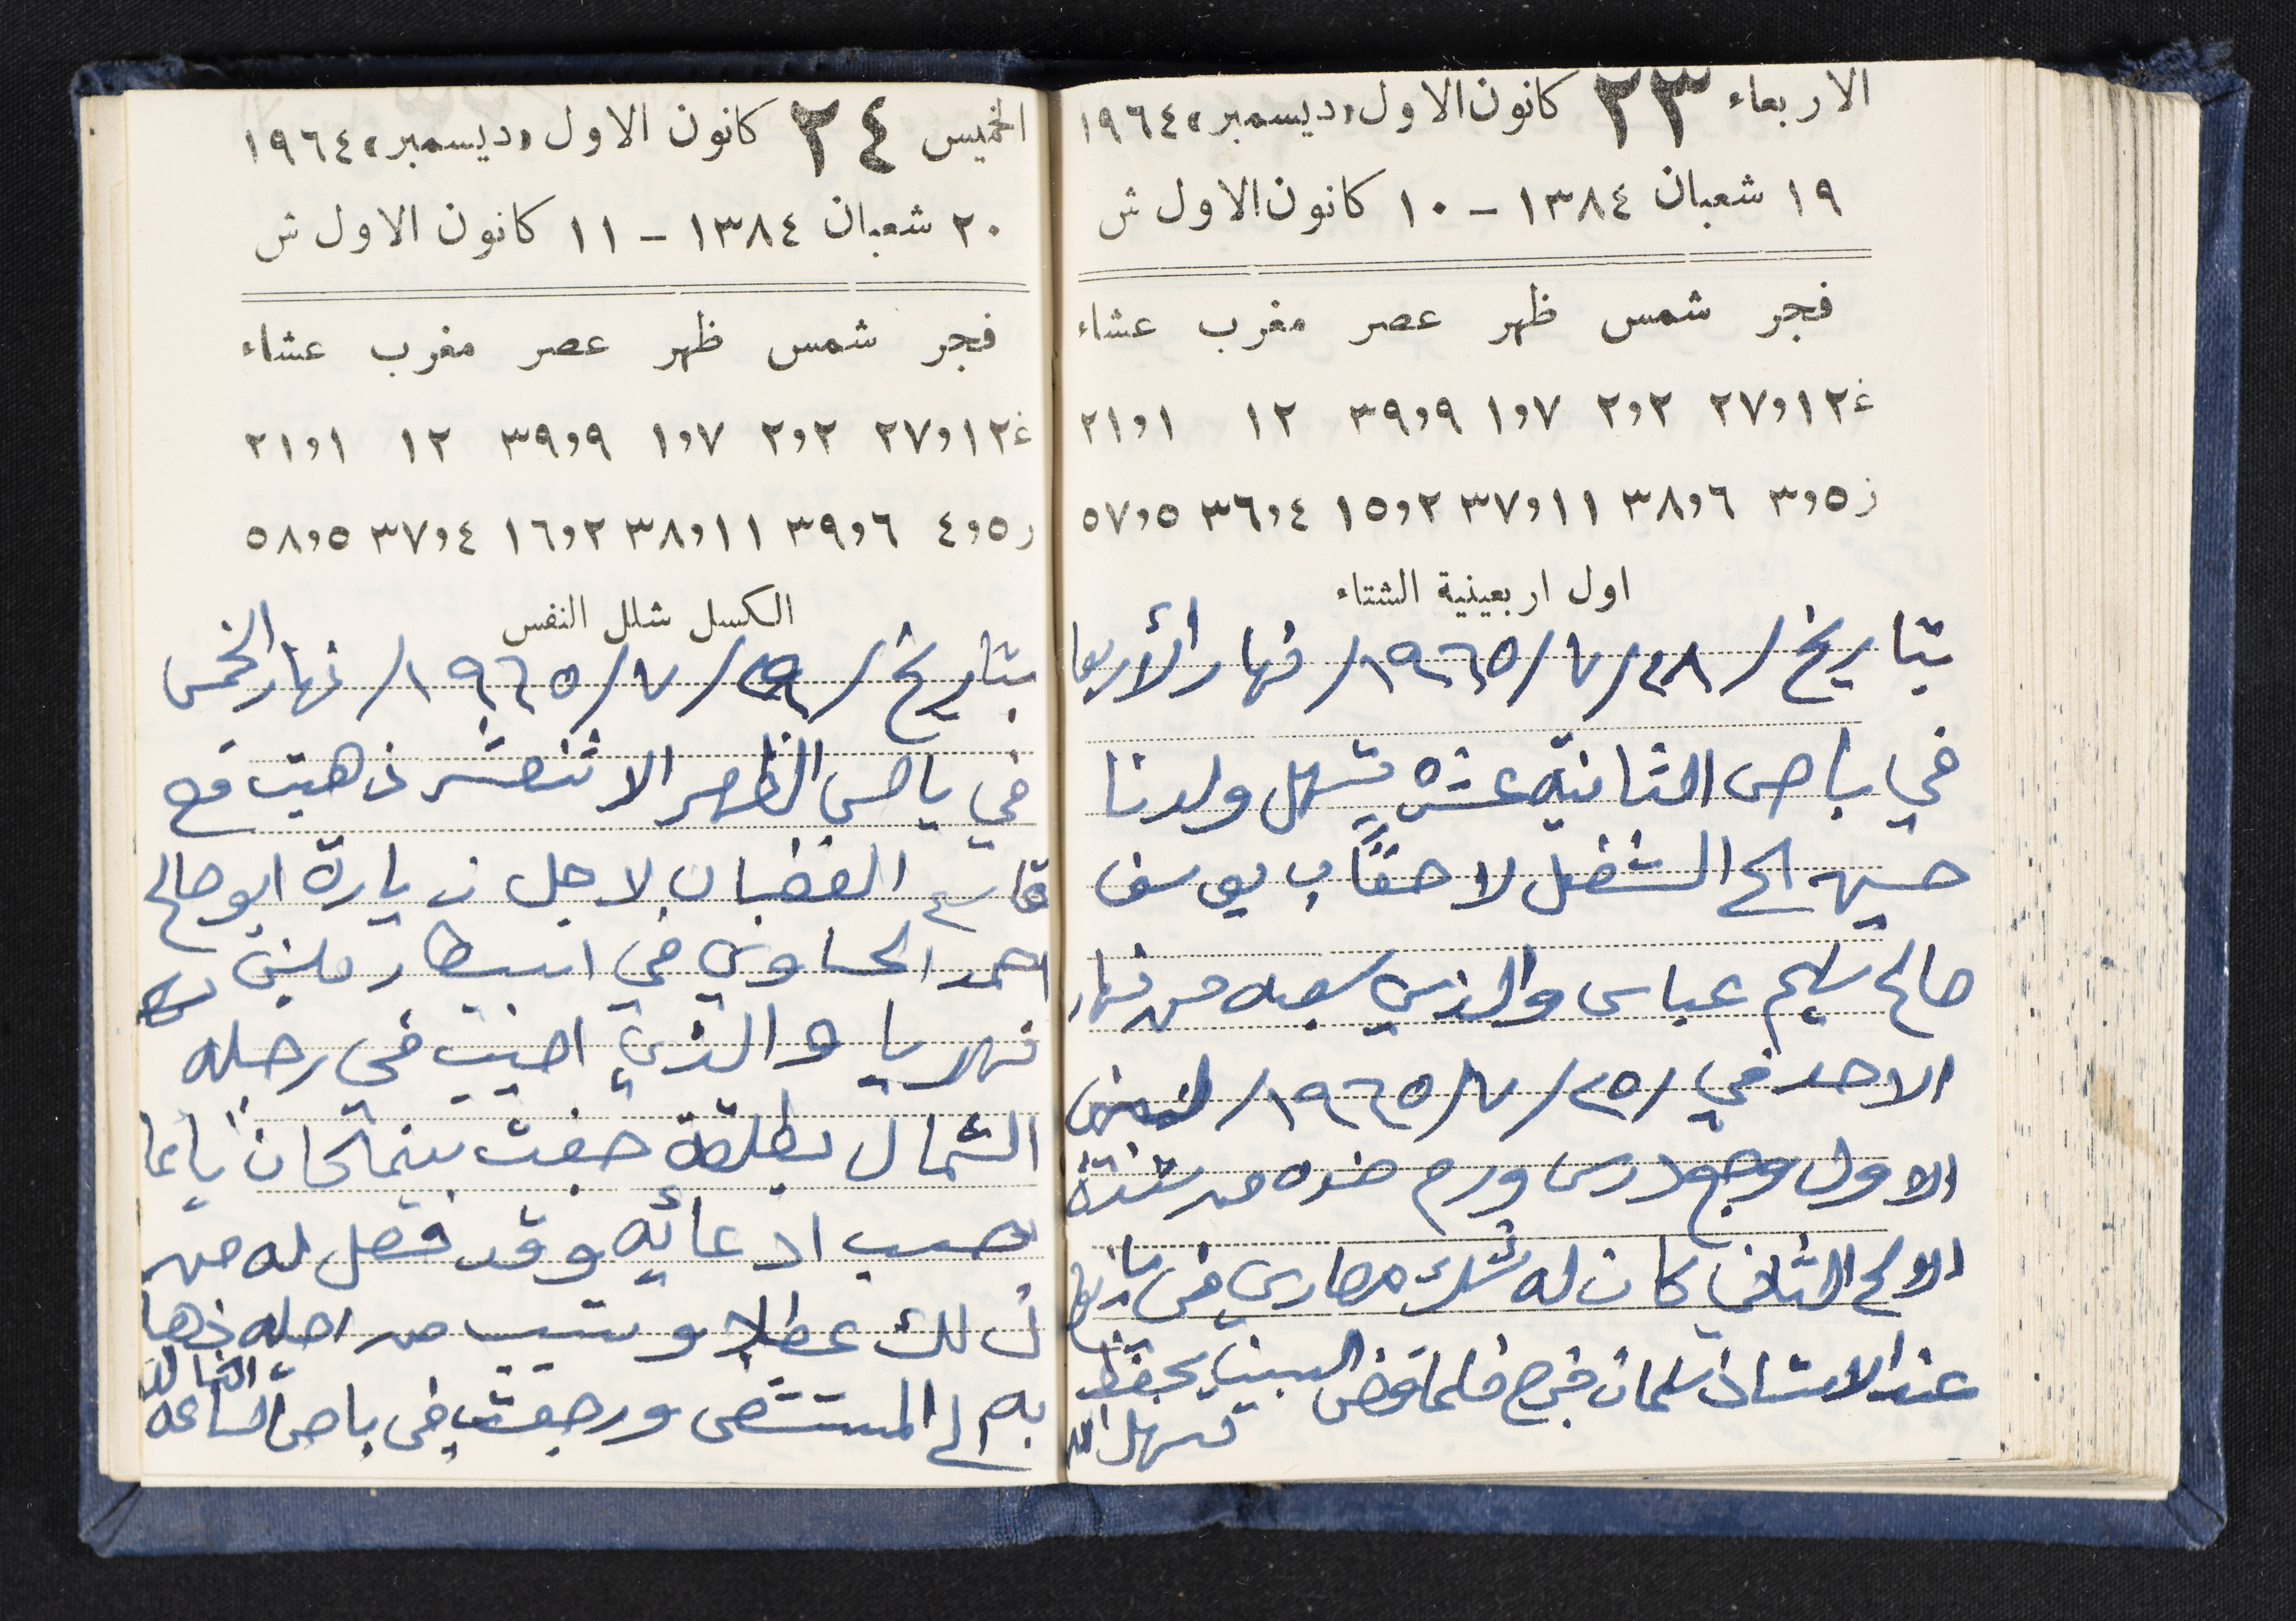 الاربعاء ٢٣ كانون الاول «ديسمبر» ١٩٦٤
١٩ شعبان ١٣٨٤ – ١٠ كانون الاول ش
فجر شمس ظهر عصر مغرب عشاء
غ ١٢و٢٧ ٢و٢ ٧و١ ٩و٣٩ ١٢ ١و٢١
ز ٥و٣ ٦و٣٨ ١١و٣٧ ٢و١٥ ٤و٣٦ ٥و٥٧
اول اربعينية الشتاء
بتاريخ /٢٨/٧/١٩٦٥/ نهار الأربعا
في باص الثانيه عشره تسهل ولدنا
حسين الى الشغل لاحقاً ب يوسف
صالح سليم عباس والذي سبعه من نهار
الاحد في /٢٥/٧/١٩٦٥/
الاول وجود رس ورم خده من شدة
الالم الثاني كان له شك مصاري في
عند الاستاذ سلمان فرج فلما قضى السببين بحفظ
تسهل الله
الخميس ٢٤ كانون الاول «ديسمبر» ١٩٦٤
٢٠ شعبان ١٣٨٤ – ١١ كانون الاول ش
فجر شمس ظهر عصر مغرب عشاء
غ ١٢و٢٧ ٢و٢ ٧و١ ٩و٣٩ ١٢ ١و٢١
ز ٥و٤ ٦و٣٩ ١١و٣٨ ٢و١٦ ٤و٣٧ ٥و٥٨
الكسل شلل النفس
بتاريخ /٢٩/٧/١٩٦٥/ نهار الخمس
في باص الظهر الاثنعشر ذهبت مع
قاسم الغضبان لاجل زيارة ابو صالح
احمد الحساوي في اسبطار
نهريا والذي اصيب في رجله
الشمال بطلقة خفت بينما كان
حسب ادعائه وقد فصل له من
ذلك عطلا وسبب من اجله ذهبا
به الى المستشفى ورجعت في باص الساعه الثالثه